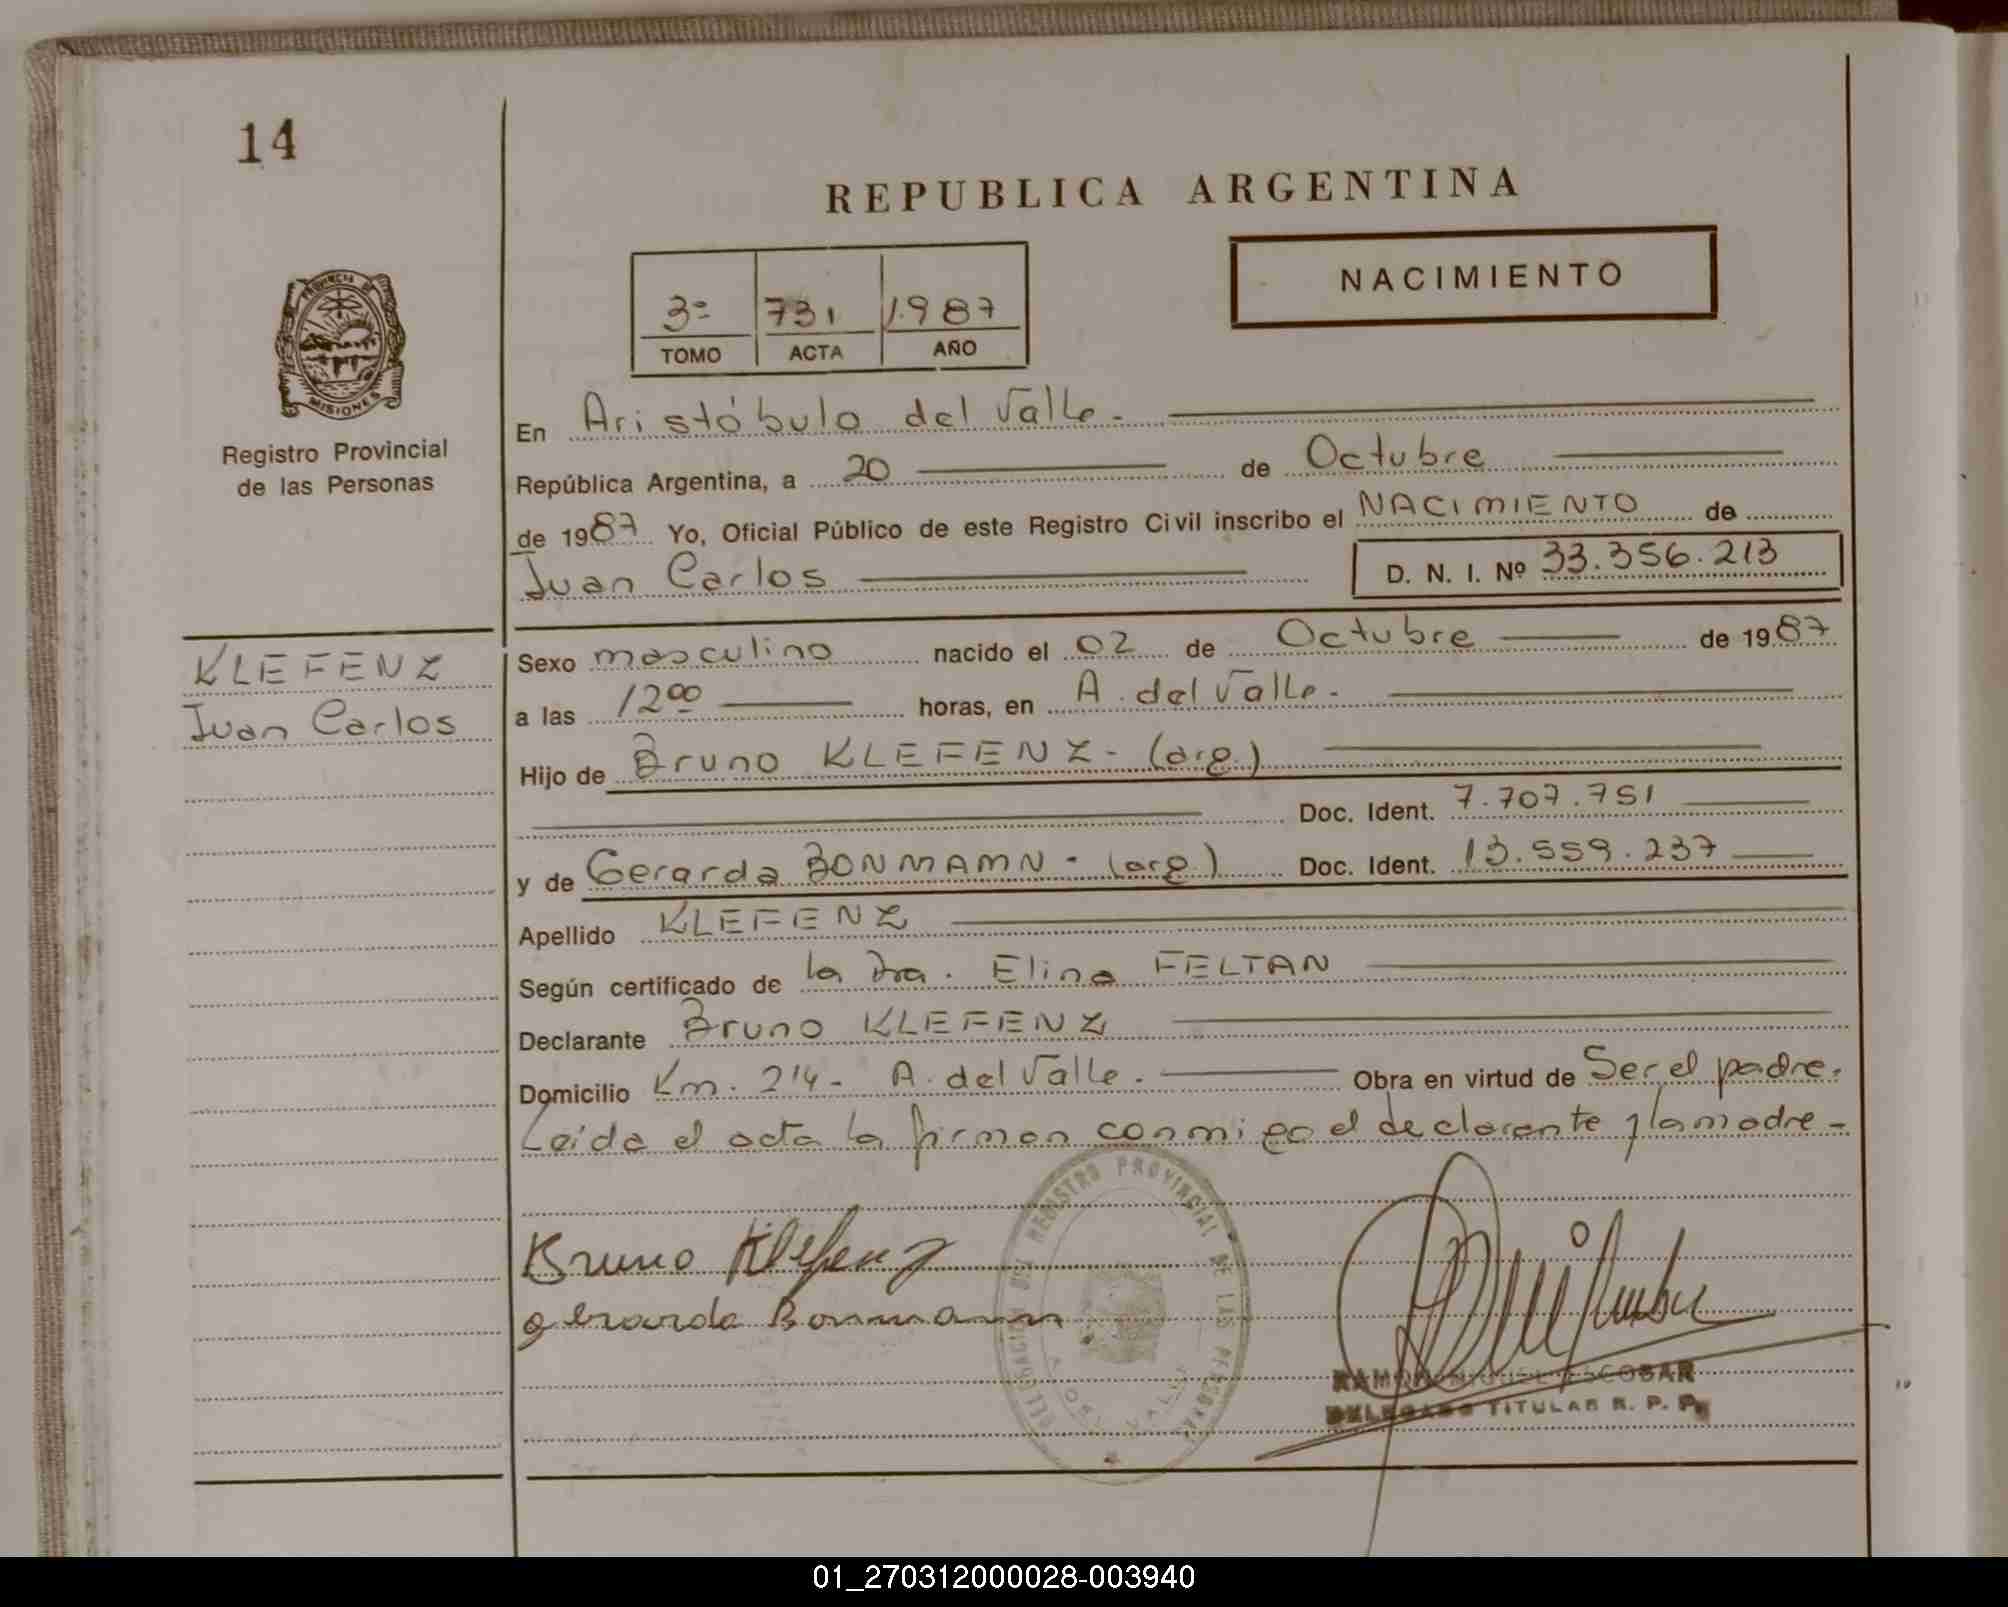 14
REPUBLICA ARGENTINA
NACIMIENTO
3º 731 1.987
TOMO ACTA AÑO
PROVINCIA DE
MISIONES
Registro Provincial
de las Personas
En Aristóbulo del Valle.-
República Argentina, a 20 de Octubre
de 1987 Yo, Oficial Público de este Registro Civil inscribo el NACIMIENTO de
Juan Carlos D. N. I. Nº 33.356.213
KLEFENZ
Juan Carlos
Sexo masculino nacido el 02 de Octubre de 1987
a las 12 00 horas, en A. del Valle.-
Hijo de Bruno KLEFENZ - (arg.)
Doc. Ident. 7.707.751
y de Gerarda BONMAMN - (arg.) Doc. Ident. 13.559.237
Apellido KLEFENZ
Según certificado de la Dra. Elina FELTAN
Declarante Bruno KLEFENZ
Domicilio Km. 214- A. del Valle. Obra en virtud de Ser el padre.
Leida el acta la firman conmigo el declarante y la madre-
Bruno Klefenz
gerarda Bonmann
DELEGACION DEL REGISTRO PROVINCIAL DE LAS PERSONAS
A. DEL VALLE
RAMON MIGUEL ESCOBAR
DELEGADO TITULAR R. P. P.
01_270312000028-003940